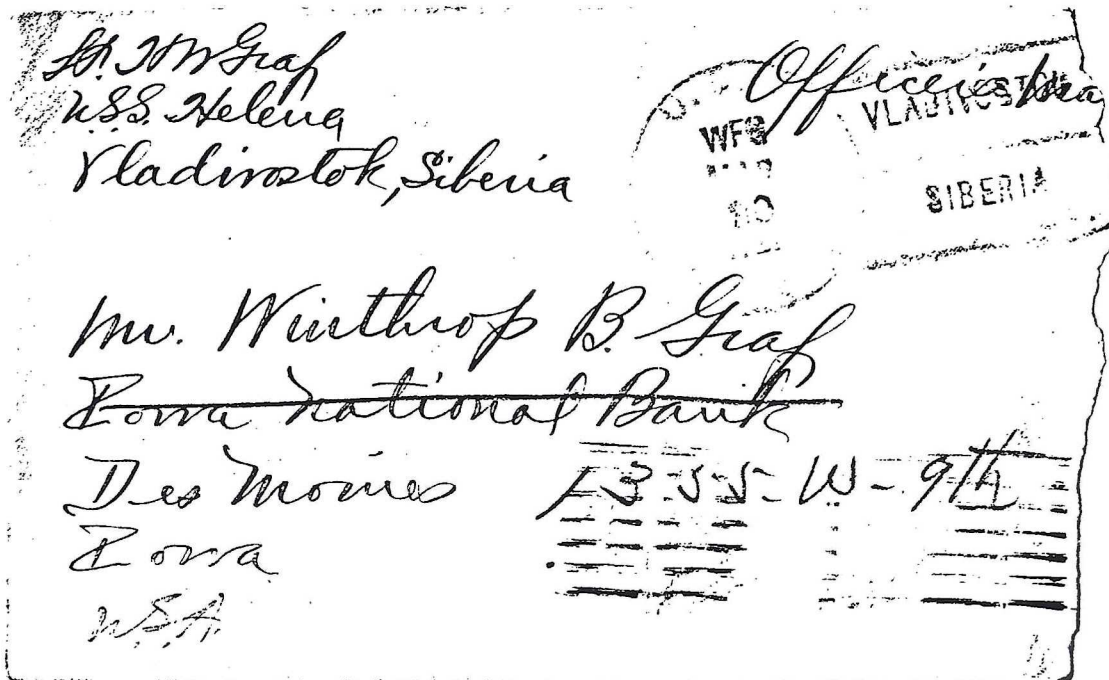 Lt. H W Graf
U.S.S. Helena
Vladivostok, Siberia
Officer's
WFS
VLADIVOSTOK
SIBERIA
Mr. Winthrop B. Graf
Iowa National Bank
Des Moines
1355 - W - 9th
Iowa
U.S.A.